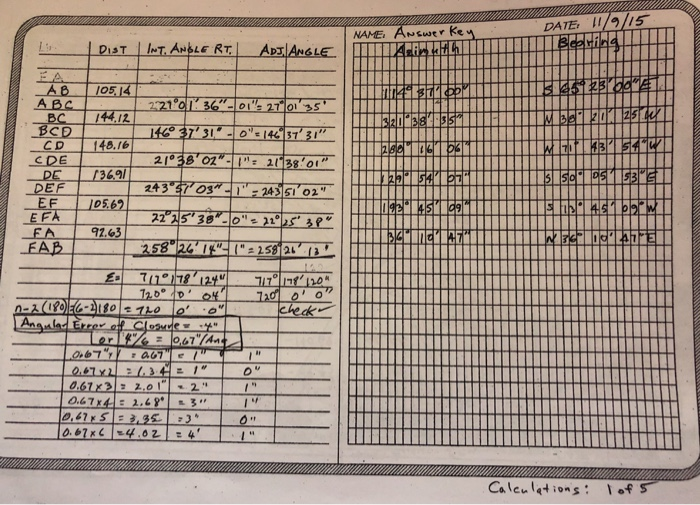 DIST INT. ANGLE RT. ADJ. ANGLE
FA
AB 105.14
ABC 227°01'36"-01"= 27°01'35"
BC 144.12
BCD 146°37'31"-0"=146°37'31"
CD 148.16
CDE 21°38'02"-1"= 21°38'01"
DE 136.91
DEF 243°51'03"-1"=243°51'02"
EF 105.69
EFA 22°25'38"-0"=22°25'38"
FA 92.63
FAB 258°26'14"-1"=258°26'13"
Σ= 717°178'124" 717°178'120"
720°0'04" 720°0'0"
n-2(180)=(6-2)180 = 720 0' 0" check ✓
Angular Error of Closure = -4"
or 4"/6 = 0.67"/Ang
0.67"x1 = 0.67" = 1" 1"
0.67x2 = 1.34 = 1" 0"
0.67x3 = 2.01" = 2" 1"
0.67x4 = 2.68" = 3" 1"
0.67x5 = 3.35 = 3" 0"
0.67x6 = 4.02 = 4' 1"
NAME: Answer Key DATE: 11/9/15
Azimuth Bearing
114°37'00" S 65°23'00"E
321°38'35" N 38°21'25"W
288°16'06" N 71°43'54"W
129°54'07" S 50°05'53"E
193°45'09" S 13°45'09"W
36°10'47" N 36°10'47"E
Calculations: 1 of 5